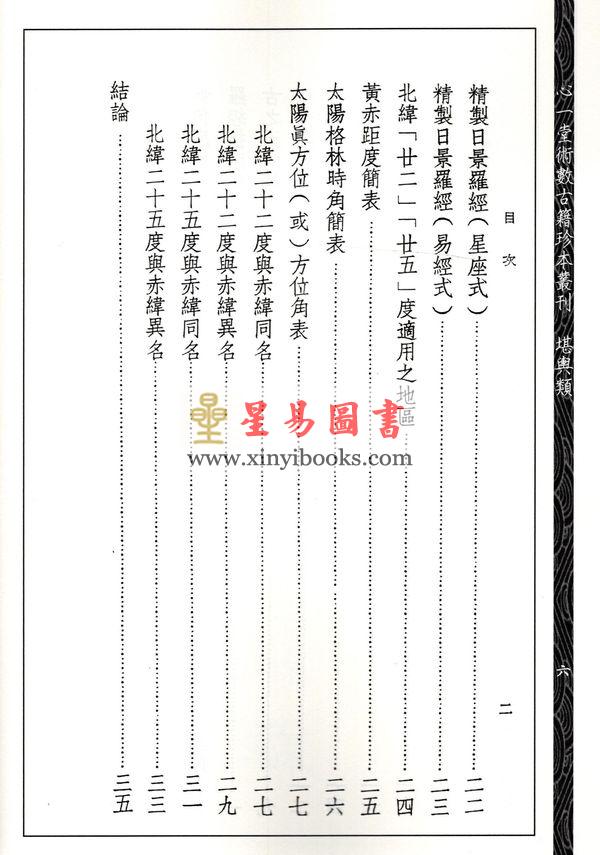 心一堂術數古籍珍本叢刊 堪輿類 六
目次 二
精製日景羅經(星座式)……二二
精製日景羅經(易經式)……二三
北緯「廿二」「廿五」度適用之地區……二四
黃赤距度簡表……二五
太陽格林時角簡表……二六
太陽眞方位(或)方位角表……二七
北緯二十二度與赤緯同名……二七
北緯二十二度與赤緯異名……二九
北緯二十五度與赤緯同名……三一
北緯二十五度與赤緯異名……三三
結論……三五
星易圖書
www.xinyibooks.com